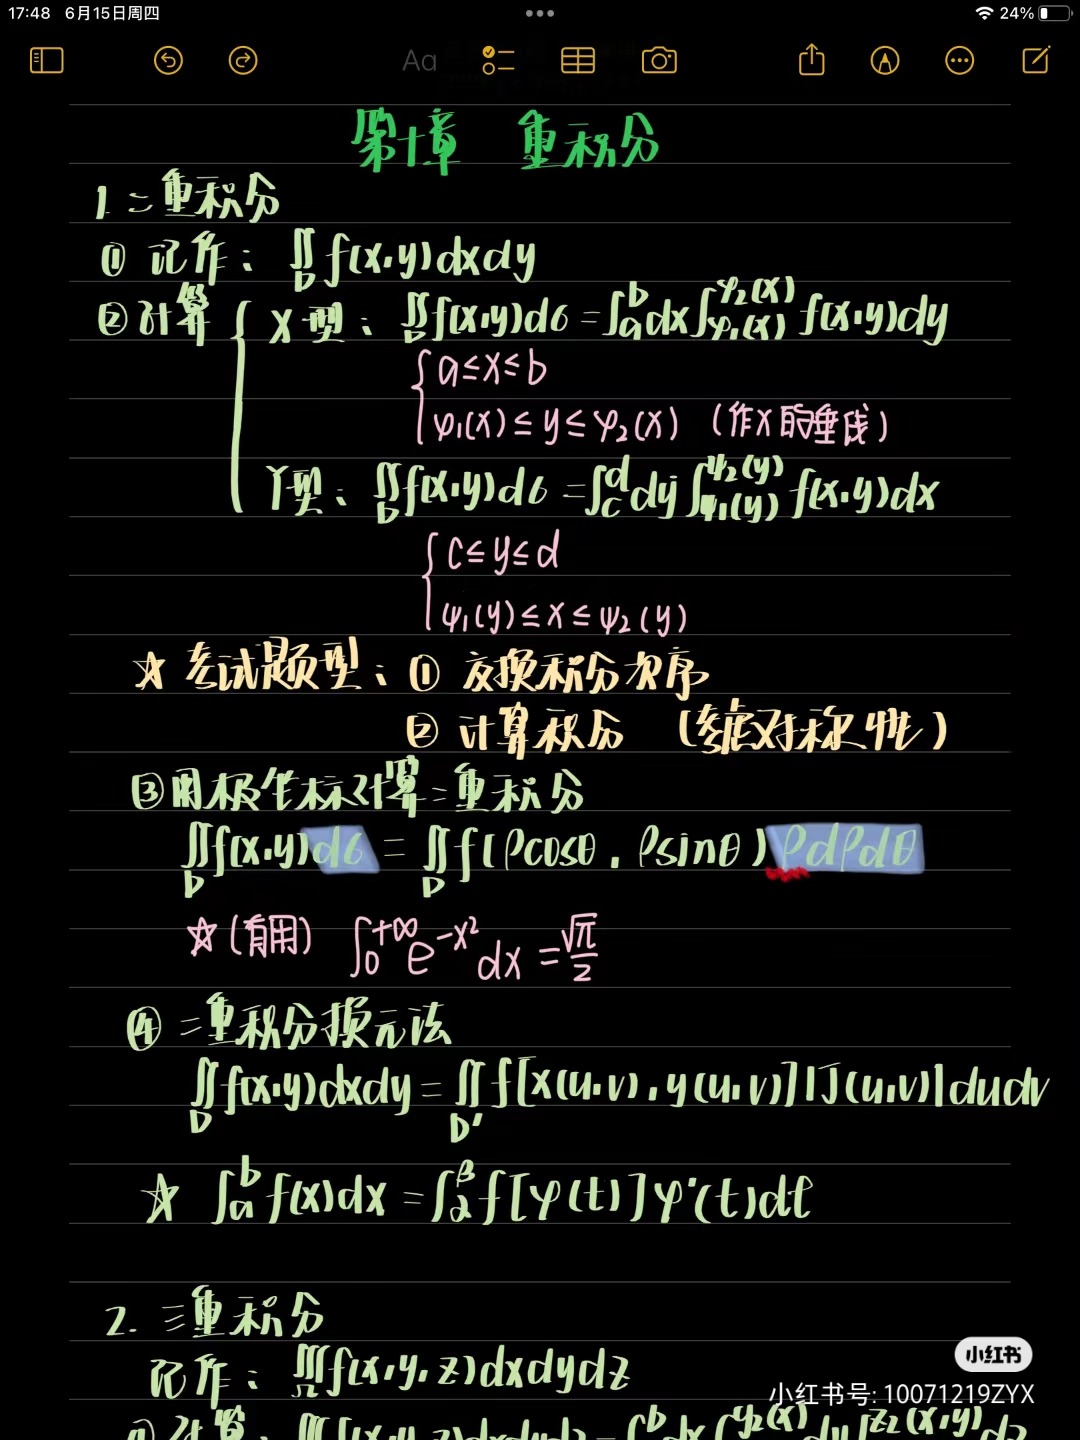 17:48 6月15日周四 24%
Aa
第十章 重积分
1. 二重积分
① 记作: ∬_D f(x,y)dxdy
② 计算 { X型: ∬_D f(x,y)dσ = ∫_a^b dx ∫_{φ₁(x)}^{φ₂(x)} f(x,y)dy
{ a≤x≤b
φ₁(x)≤y≤φ₂(x) (作X的垂线)
Y型: ∬_D f(x,y)dσ = ∫_c^d dy ∫_{ψ₁(y)}^{ψ₂(y)} f(x,y)dx
{ c≤y≤d
ψ₁(y)≤x≤ψ₂(y)
☆ 考试题型: ① 交换积分次序
② 计算积分 (考虑对称性)
③ 用极坐标计算二重积分
∬_D f(x,y)dσ = ∬_D f(ρcosθ, ρsinθ)ρdρdθ
☆(有用) ∫_0^{+∞} e^{-x²} dx = √π/2
④ 二重积分换元法
∬_D f(x,y)dxdy = ∬_{D'} f[x(u,v), y(u,v)]|J(u,v)|dudv
☆ ∫_a^b f(x)dx = ∫_α^β f[φ(t)]φ'(t)dt
2. 三重积分
记作: ∭_Ω f(x,y,z)dxdydz
小红书
小红书号: 10071219ZYX